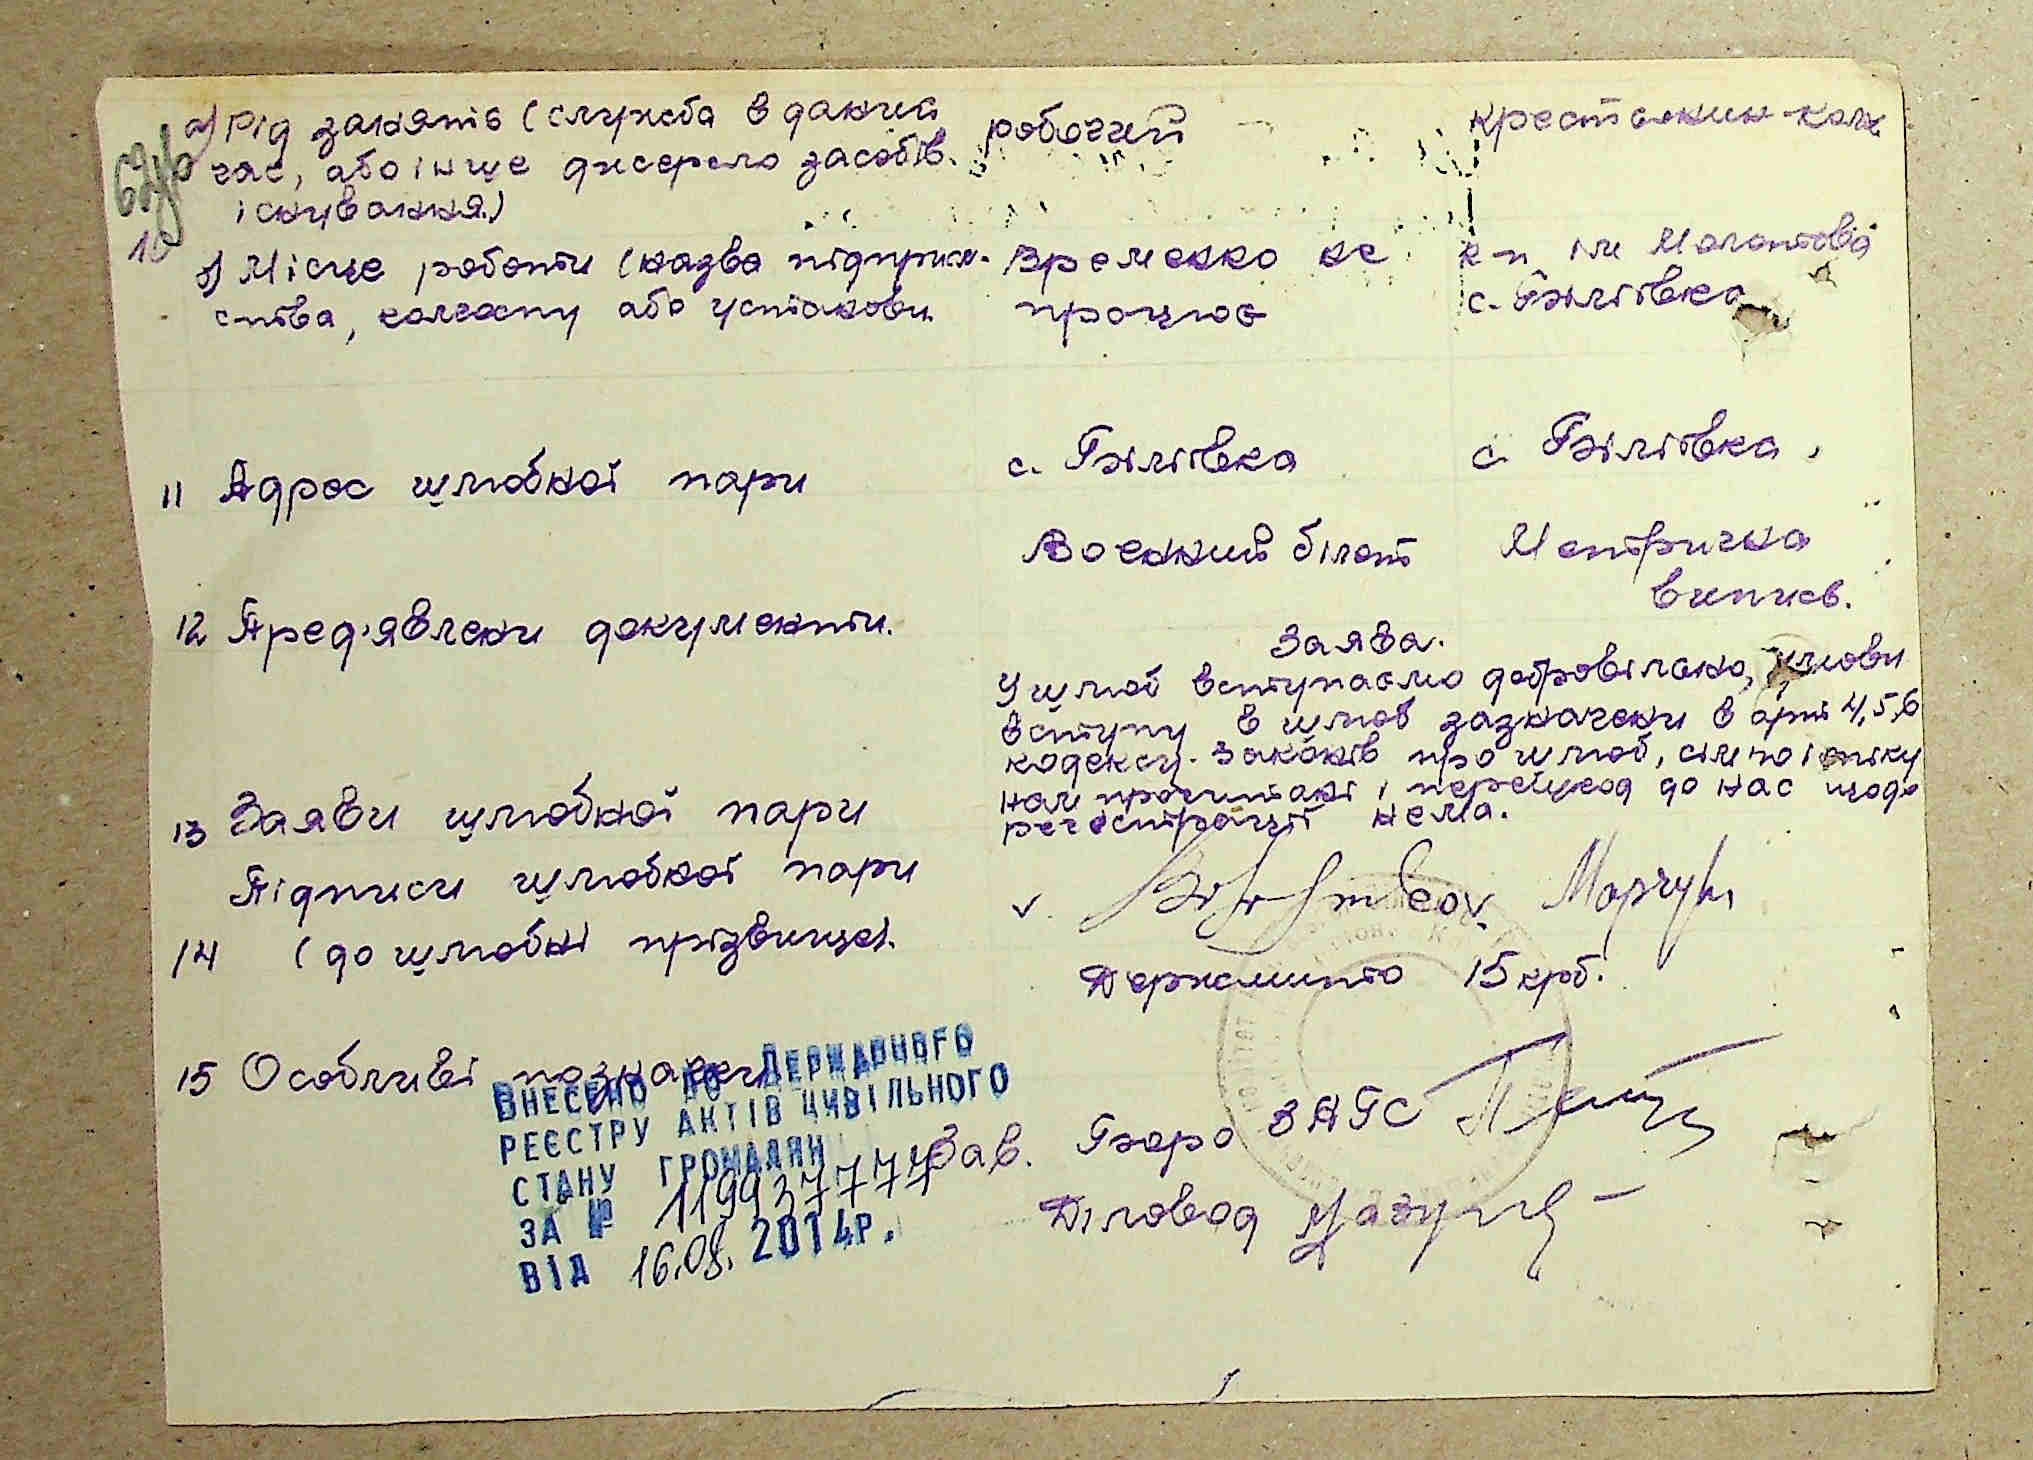 а) Рід занятів (служба в даний робочий крестьянин-колх
час, або інше джерело засобів
існування.)
10
б) Місце роботи (назва підприєм- Временно не к-п ім Молотова
ства, колгоспу або установи працює с. Білівка
11 Адрес шлюбної пари с. Білівка с. Білівка
Военний білет Метрична
выпись.
12 Пред'явлени документи.
Заява.
У шлюб вступаємо добровільно, умови
вступу в шлюб зазначени в арт 4,5,6
кодексу. Законів про шлюб, сім'ю і опіку
нам прочитані і перешкод до нас щодо
регострації нема.
13 Заяви шлюбної пари
Підписи шлюбної пари
14 (до шлюбні прізвище).
Марчук
Держмито 15 крб.
15 Особливі познаки
ВНЕСЕНО ДО ДЕРЖАВНОГО
РЕЄСТРУ АКТІВ ЦИВІЛЬНОГО
СТАНУ ГРОМАДЯН
ЗА № 119937777
ВІД 16.08.2014Р.
Зав. Бюро ЗАГС
Діловод